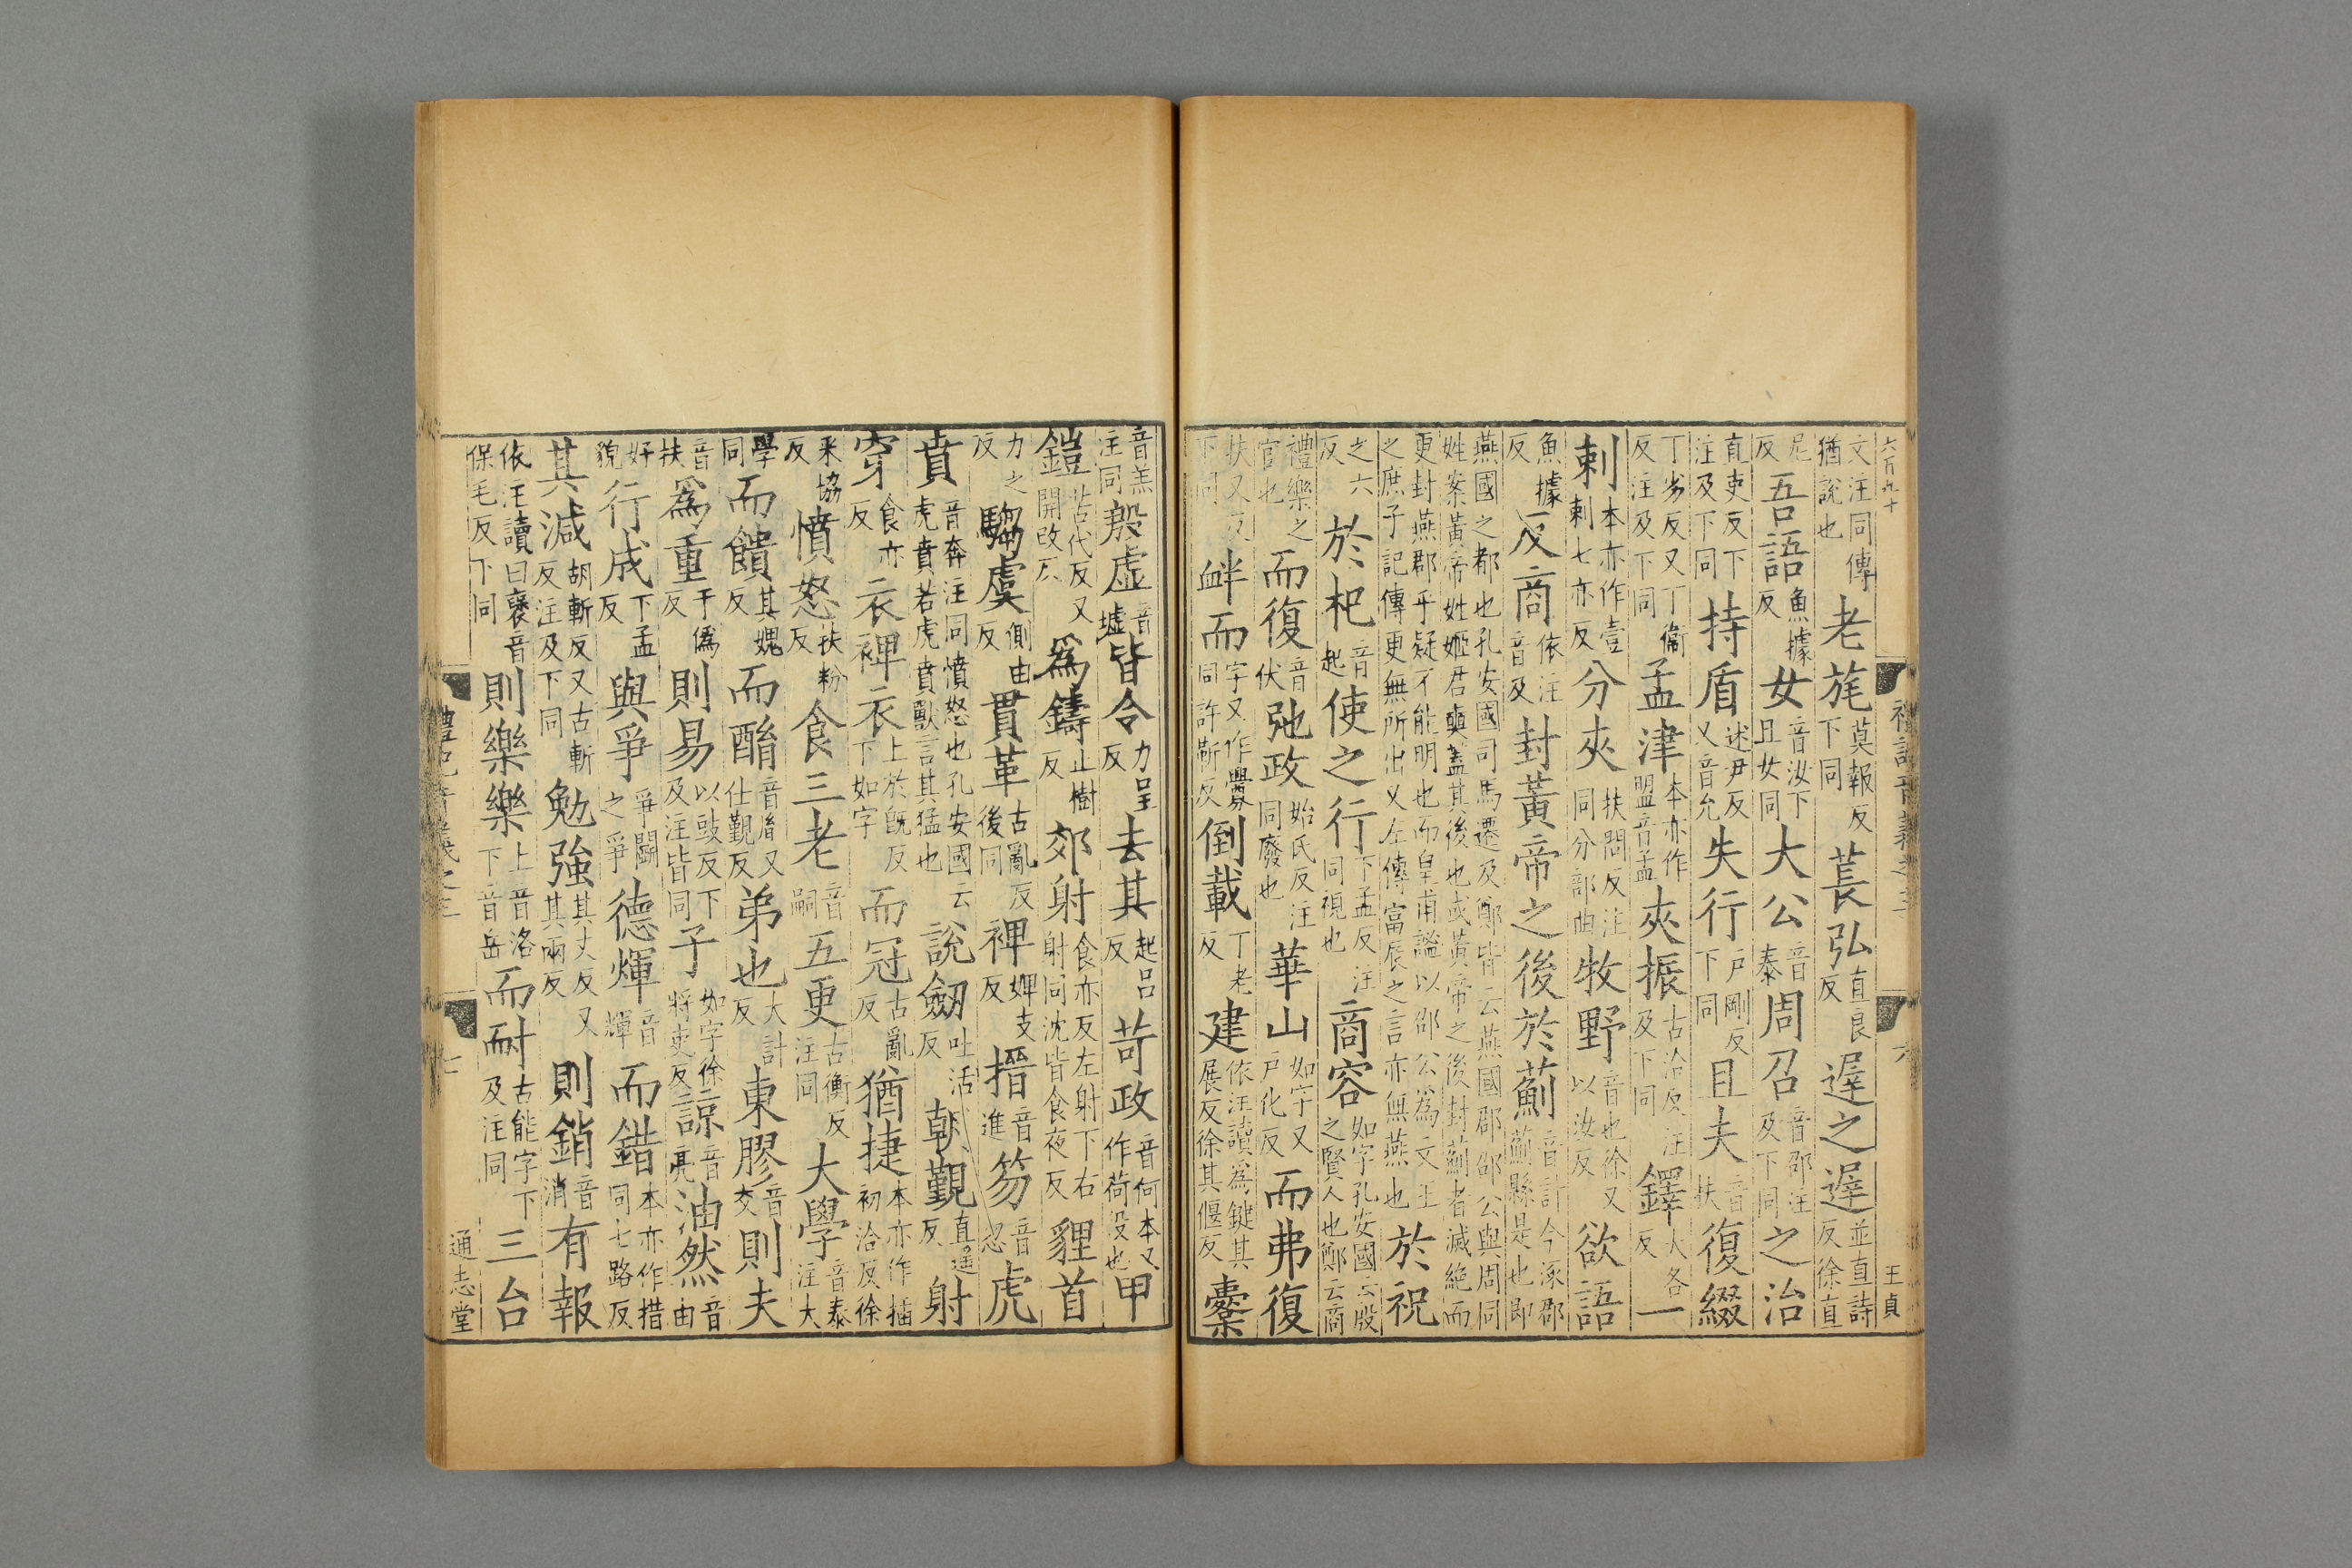 六百九十
禮記音義之三
六
王貞
文注同傳猶說也老旄莫報反下同萇弘直良反遲之遲並直詩反徐直
尼反吾語魚據反女音汝下且女同大公音泰周召音邵注及下同之治
直吏反下注及下同持盾述尹反又音允失行戶剛反下同且夫音扶復綴
丁劣反又丁衞反注及下同孟津本亦作盟音孟夾振古洽反注及下同鐸大各反一
刺本亦作壹刺七亦反分夾扶問反注同分部曲牧野音也徐又以汝反欲語
魚據反反商依注音及封黃帝之後於薊音計今涿郡薊縣是也即
燕國之都也孔安國司馬遷及鄭皆云燕國郡邵公與周同
姓案黃帝姓姬君奭蓋其後也或黃帝之後封薊者滅絕而
更封燕郡乎疑不能明也而皇甫謐以邵公爲文王
之庶子記傳更無所出又左傳富辰之言亦無燕也於祝
之六反於杞音起使之行下孟反注同視也商容如字孔安國云殷之賢人也鄭云商
禮樂之官也而復音伏弛政始氏反注同廢也華山如字又戶化反而弗復
扶又反下同衅而字又作釁同許靳反倒載丁老反建依注讀爲鍵其展反徐其偃反櫜
音羔注同殷虚音墟皆令力呈反去其起呂反苛政音何本又作荷役也甲
鎧苦代反又開改反爲鑄止樹反郊射食亦反左射下右射同沈皆食夜反貍首
力之反騶虞側由反貫革古亂反後同裨婢支反搢音進笏音忽虎
賁音奔注同憤怒也孔安國云虎賁若虎賁獸言其猛也說劒吐活反朝覲直遥反射
穿食亦反衣裨衣上於旣反下如字而冠古亂反猶捷本亦作插初洽反徐
采協反憤怒扶粉反食三老音嗣五更古衡反注同大學音泰注大
學同而饋其媿反而酳音胤又仕覲反弟也大計反東膠音交則夫
音扶爲重于僞反則易以豉反下及注皆同子如字徐將吏反諒音亮油然音由
好貌行成下孟反與爭爭鬭之爭德煇音輝而錯本亦作措同七路反
其減胡斬反又古斬反注及下同勉強其丈反又其兩反則銷音消有報
依注讀曰襃音保毛反下同則樂樂上音洛下音岳而耐古能字下及注同三台
禮記音義之三
七
通志堂